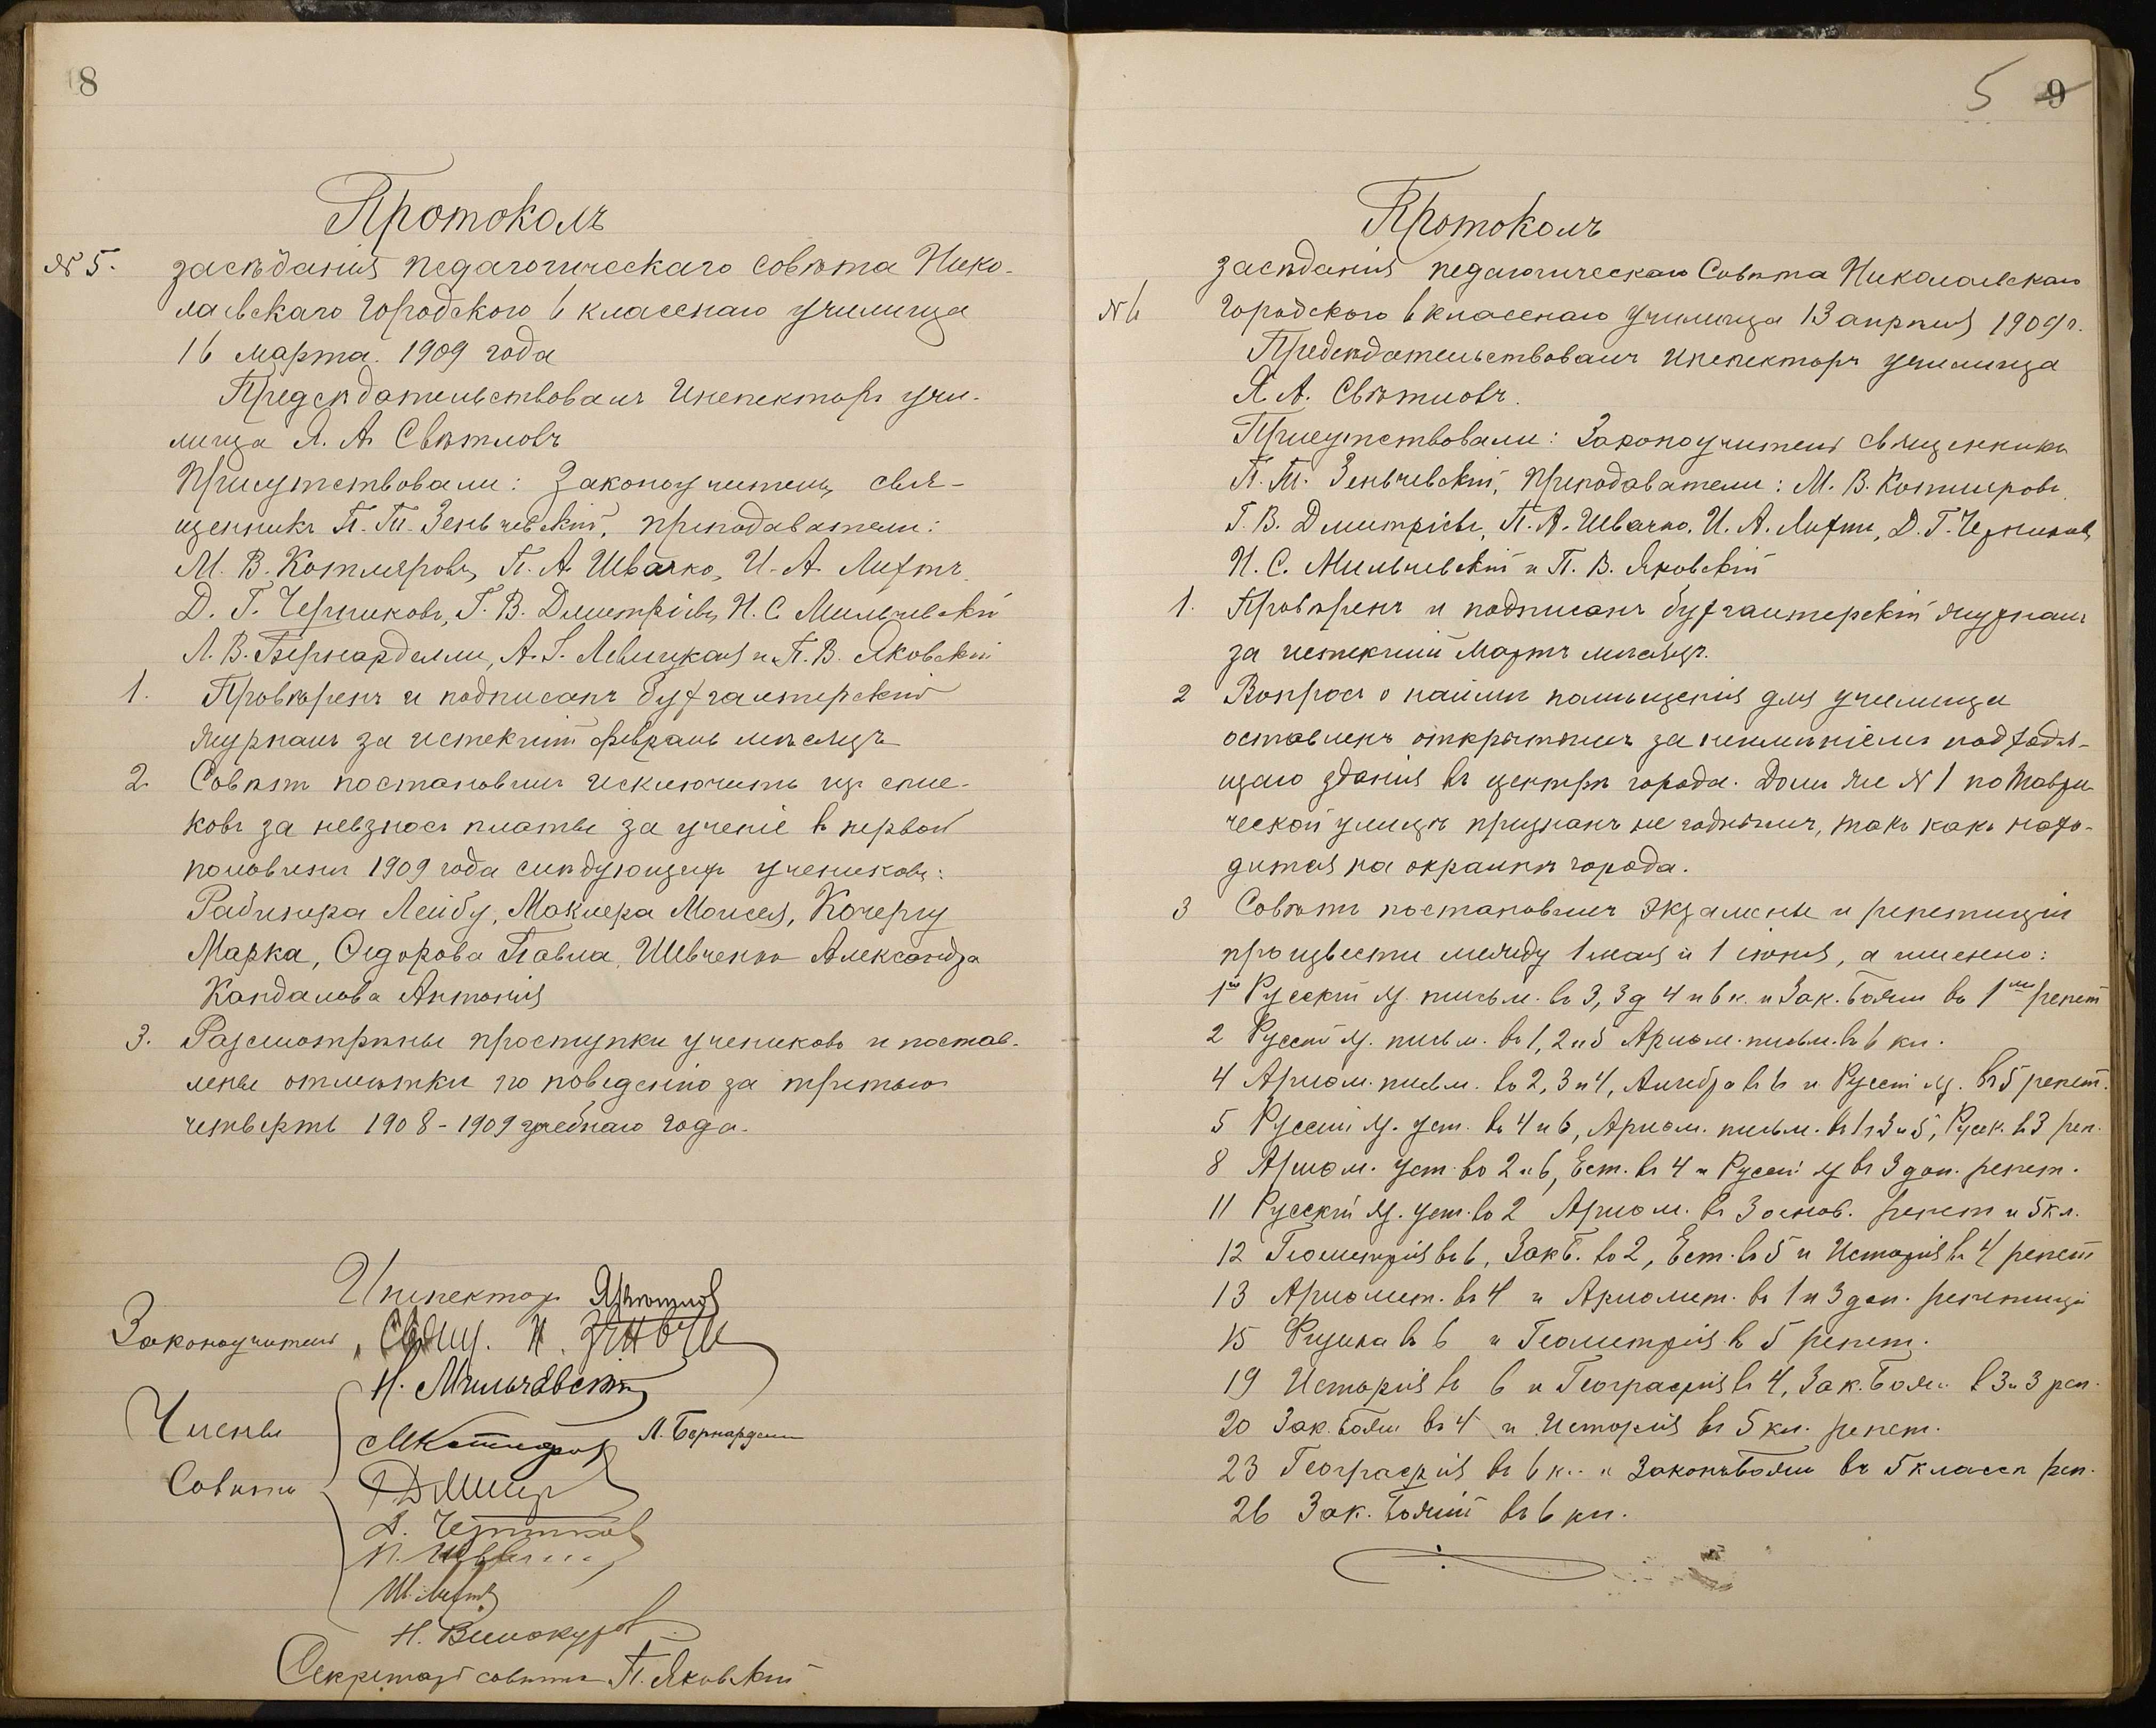 8
Протоколъ
№ 5. засѣданія педагогическаго совѣта Нико-
лаевскаго городского 6 класснаго училища
16 марта 1909 года
Предсѣдательствовалъ Инспекторъ учи-
лища Я. А. Свѣтловъ
Присутствовали: Законоучитель свя-
щенникъ П. Т. Зеньчевскій, преподаватели:
М. В. Котляровъ, П. А. Швачко, И. А. Лифтъ,
Д. Г. Черниковъ, Г. В. Дмитріевъ, Н. С. Мильчевскій
Л. В. Бернарделли, А. Левицкая и П. В. Яковскій
1. Провѣренъ и подписанъ бухгалтерскій
журналъ за истекшій февраль мѣсяцъ
2. Совѣтъ постановилъ исключить изъ спис-
ковъ за невзносъ платы за ученіе въ первой
половинѣ 1909 года слѣдующихъ учениковъ:
Рабинера Лейбу, Моклера Моисея, Кочергу
Марка, Сидорова Павла, Шевченко Александра
Кандалова Антонія
3. Разсмотрѣны проступки учениковъ и постав-
лены отмѣтки по поведенію за третью
четверть 1908-1909 учебнаго года.
Инспекторъ Я. Свѣтловъ
Законоучитель, Свящ. П. Зеньч
Н. Мильчевскій
Члены М. Котляров Л. Бернарделли
Совѣта Г. Дмитр
Д. Черников
П. Шв
И. Лифтъ
Н. Винокуров
Секретарь совѣта П. Яковскій
5 9
Протоколъ
засѣданія педагогическаго Совѣта Николаевскаго
№ 6 городского 6 класснаго училища 13 апрѣля 1909 г.
Предсѣдательствовалъ инспекторъ училища
Я. А. Свѣтловъ.
Присутствовали: Законоучитель священникъ
П. Т. Зеньчевскій, преподаватели: М. В. Котляровъ,
Г. В. Дмитріевъ, П. А. Швачко, И. А. Лифтъ, Д. Г. Черниковъ
Н. С. Мильчевскій и П. В. Яковскій
1. Провѣренъ и подписанъ бухгалтерскій журналъ
за истекшій Мартъ мѣсяцъ.
2 Вопросъ о наймѣ помѣщенія для училища
оставленъ открытымъ за неимѣніемъ подходя-
щаго зданія въ центрѣ города. Домъ же № 1 по Таври-
ческой улицѣ признанъ не годнымъ, такъ какъ нахо-
дится на окраинѣ города.
3 Совѣтъ постановилъ экзамены и репетиціи
произвести между 1 мая и 1 іюня, а именно:
1го Русскій яз. письм. въ 3, 3д 4 и 6 к. и Зак. Божій въ 1мъ репет
2 Русскій яз. письм. въ 1, 2 и 5 Ариѳм. письм. въ 6 кл.
4 Ариѳм. письм. во 2, 3 и 4, Алгебра въ 6 и Русскій яз. въ 5 репет.
5 Русскій яз. уст. въ 4 и 6, Ариѳм. письм. въ 1, 3 и 5, Русск. в 3 реп.
8 Ариѳм. уст. во 2 и 6, Ест. въ 4 и Русскій яз въ 3 доп. репет.
11 Русскій яз. уст. во 2 Ариѳм. въ 3 основ. репет и 5 кл.
12 Геометрія въ 6, Зак Б. во 2, Ест. въ 5 и Исторія въ 4 репет
13 Ариѳмет. въ 4 и Ариѳмет. въ 1 и 3 доп. репетиція
15 Физика въ 6 и Геометрія въ 5 репет.
19 Исторія въ 6 и Географія въ 4, Зак. Божій въ 3 и 3 реп.
20 Зак. Божій въ 4 и Исторія въ 5 кл. репет.
23 Географія въ 6 кл. и Законъ Божій въ 5 классѣ реп.
26 Зак. Божій въ 6 кл.